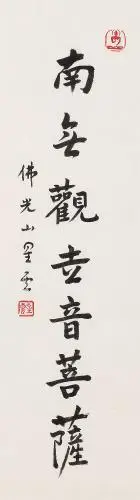 南無觀世音菩薩
佛光山星雲